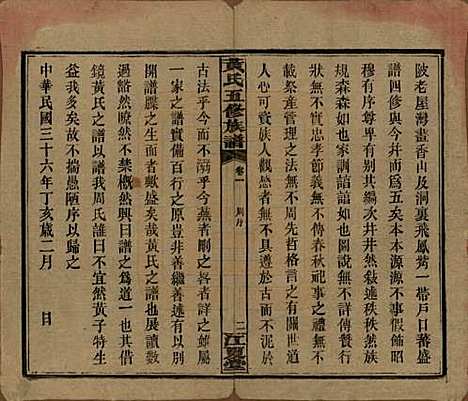 陂老屋灣畫香山及洞裏飛鳳菊一帶戶口蕃盛
譜四修與今并而為五矣本本源源不事假飾昭
穆有序尊卑有別其紀次井井然敍述秩秩然族
規森森如也家訓諄諄如也圖說無不詳傳贊行
狀無不實忠孝節義無不傳春秋祀事之禮可
載祭產管理之法有無不周先哲格言之有關世道
人心可貴族人觀感者無不遵於古而不泥於
黃氏五修族譜
卷一
周序
二
江夏堂
古法乎今而不溺乎今蕪者刪之畧者詳之雖屬
一家之譜實備百行之原豈非善繼善述有以大
開譜牒之生面者歟盛矣哉黃氏之譜也展讀數
過豁然瞭然不禁慨然興曰譜之為道一也宜以
鏡黃氏之譜以我周氏誰曰不宜然黃子特生
益我多矣故不揣固陋序以歸之
中華民國三十六年丁亥歲二月　日